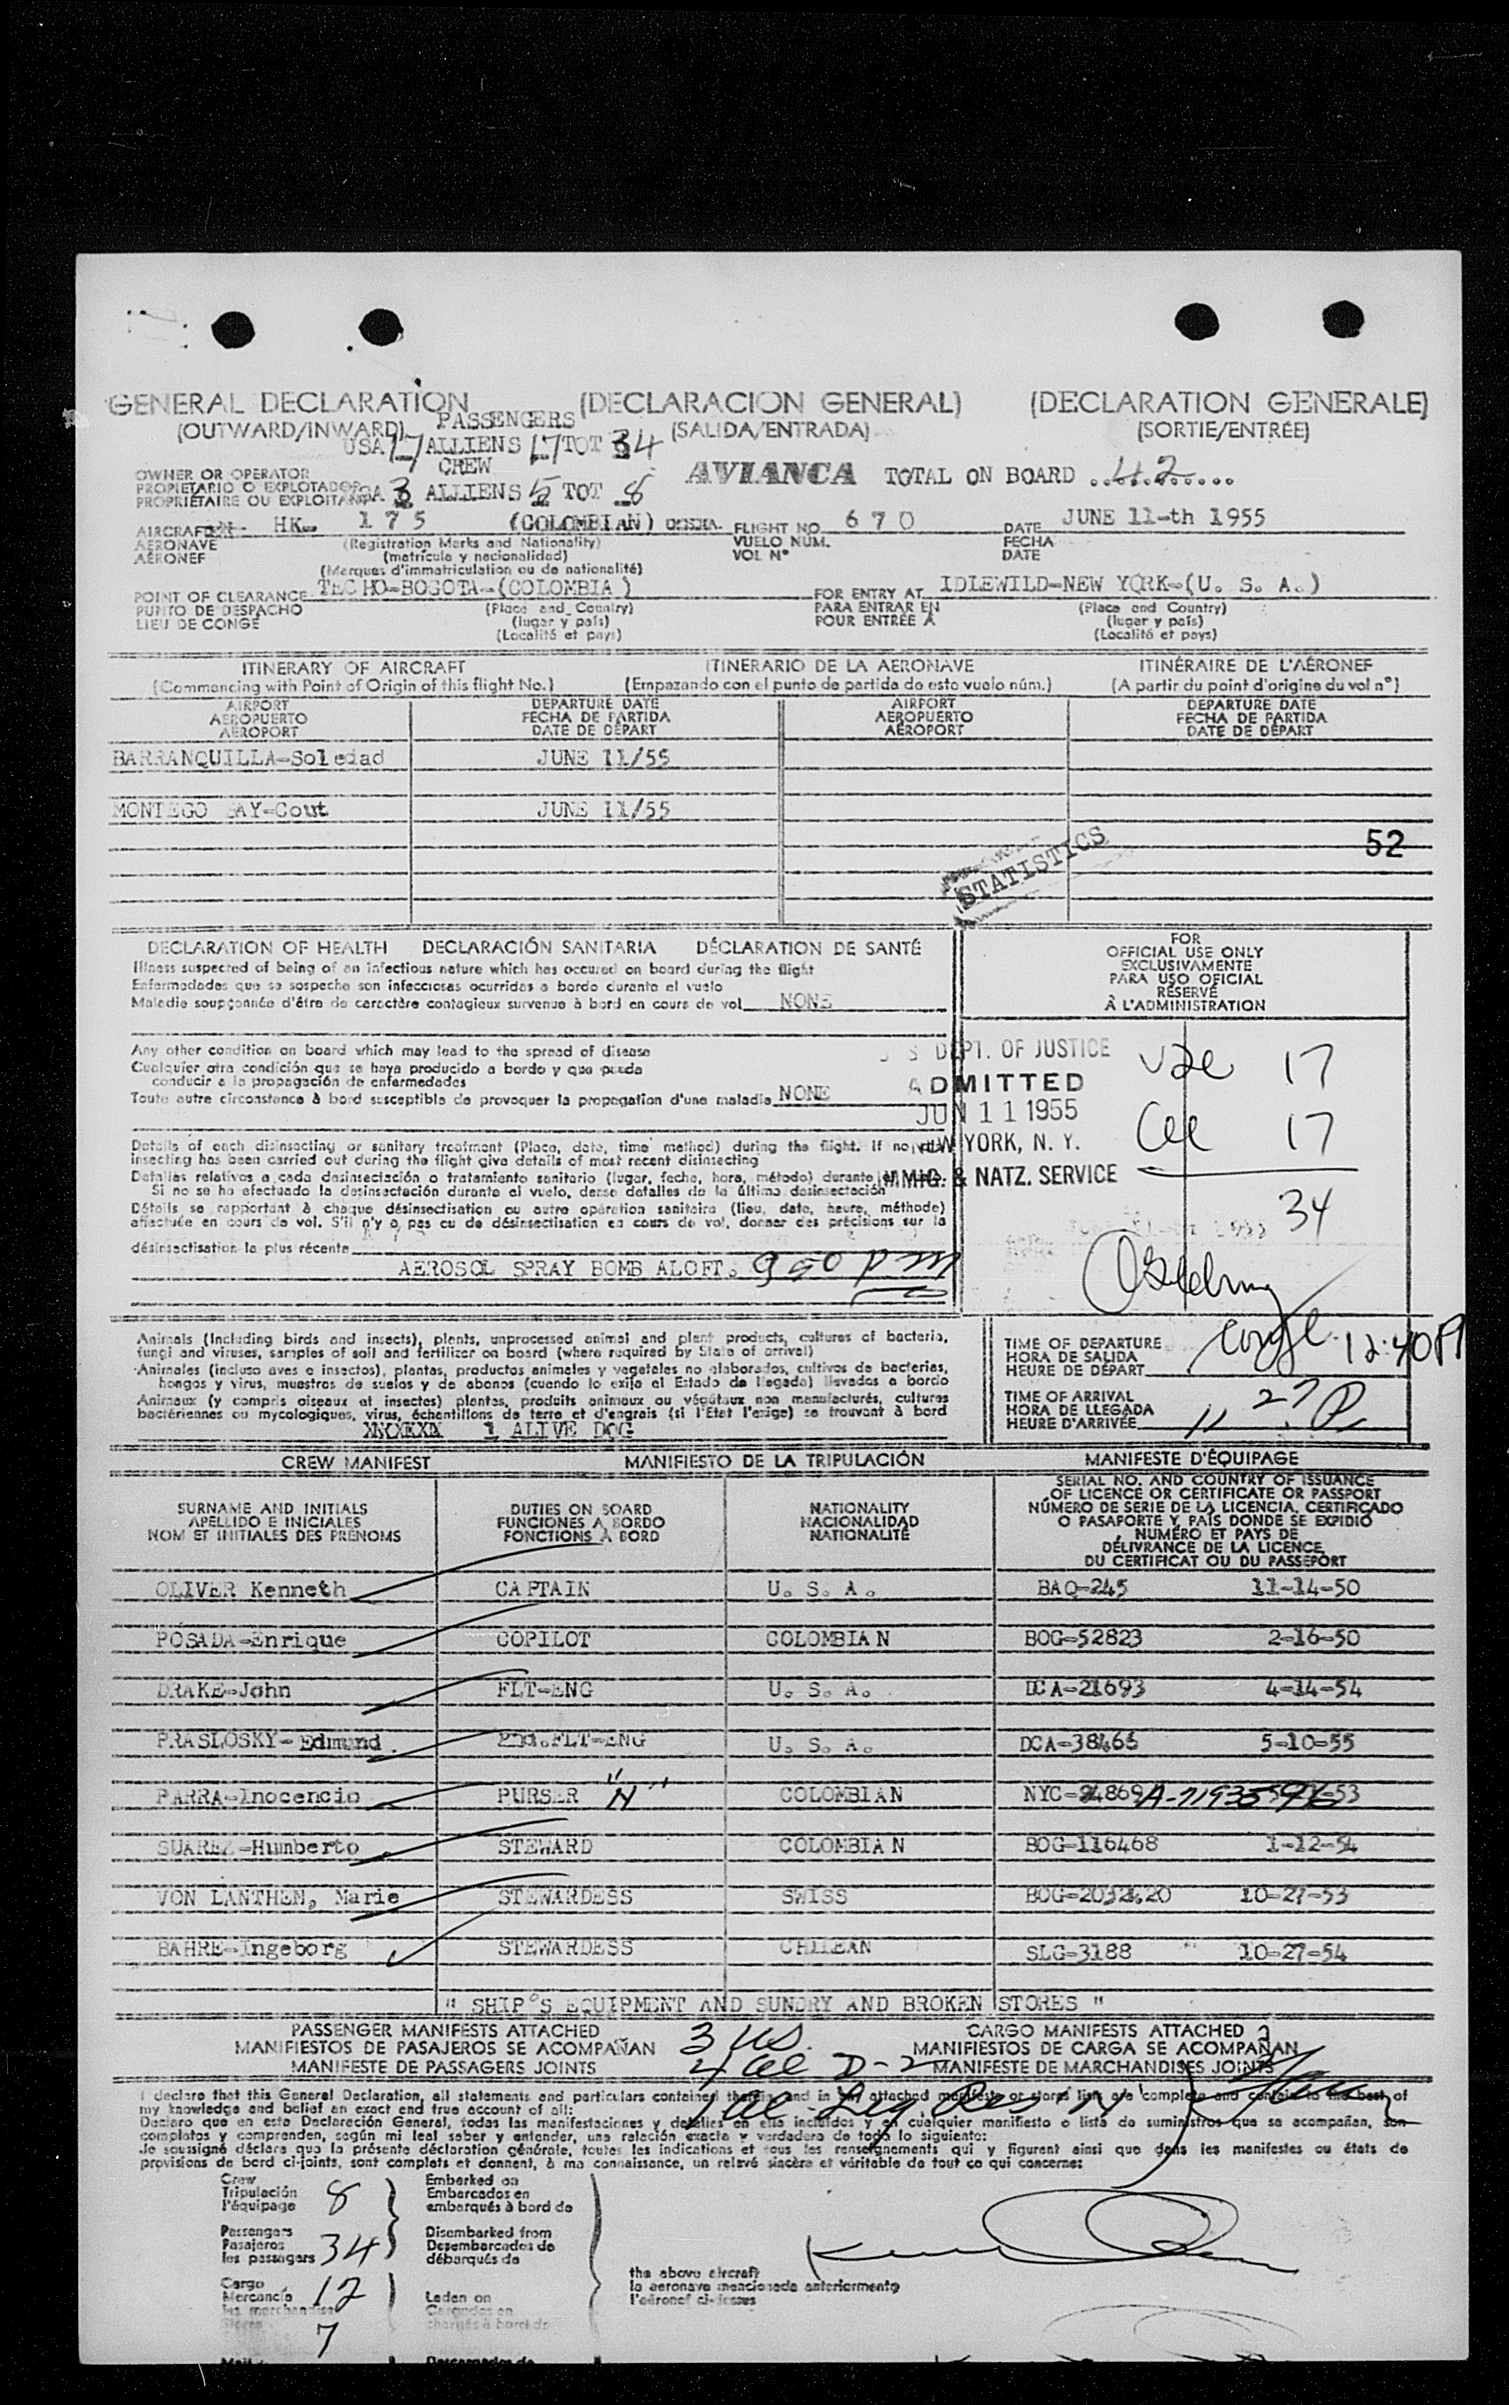 GENERAL DECLARATION (DECLARACION GENERAL) (DECLARATION GENERALE)
(OUTWARD/INWARD) PASSENGERS (SALIDA/ENTRADA) (SORTIE/ENTRÉE)
USA 17 ALLIENS 17 TOT 34
CREW
OWNER OR OPERATOR AVIANCA TOTAL ON BOARD 42
PROPIETARIO O EXPLOTADOR
PROPRIÉTAIRE OU EXPLOITANT USA 3 ALLIENS 5 TOT 8
AIRCRAFT HK- 175 (COLOMBIAN) FLIGHT NO. 670 DATE JUNE 11-th 1955
AERONAVE (Registration Marks and Nationality) VUELO NÚM. FECHA
AÉRONEF (matrícula y nacionalidad) VOL N° DATE
(Marques d'immatriculation ou de nationalité)
POINT OF CLEARANCE TECHO-BOGOTA-(COLOMBIA) FOR ENTRY AT IDLEWILD-NEW YORK-(U. S. A.)
PUNTO DE DESPACHO (Place and Country) PARA ENTRAR EN (Place and Country)
LIEU DE CONGÉ (lugar y país) POUR ENTRÉE A (lugar y país)
(Localité et pays) (Localité et pays)
ITINERARY OF AIRCRAFT ITINERARIO DE LA AERONAVE ITINÉRAIRE DE L'AÉRONEF
(Commencing with Point of Origin of this flight No.) (Empazando con el punto de partida de esto vuelo núm.) (A partir du point d'origine du vol n°)
AIRPORT DEPARTURE DATE AIRPORT DEPARTURE DATE
AEROPUERTO FECHA DE PARTIDA AEROPUERTO FECHA DE PARTIDA
AÉROPORT DATE DE DÉPART AÉROPORT DATE DE DÉPART
BARRANQUILLA-Soledad JUNE 11/55
MONTEGO BAY-Cout JUNE 11/55
52
STATISTICS
DECLARATION OF HEALTH DECLARACIÓN SANITARIA DÉCLARATION DE SANTÉ
Illness suspected of being of an infectious nature which has occured on board during the flight
Enfermedades que se sospeche son infecciosas ocurridas a bordo durante el vuelo
Maladie soupçonnée d'être de caractère contagieux survenue à bord en cours de vol NONE
FOR
OFFICIAL USE ONLY
EXCLUSIVAMENTE
PARA USO OFICIAL
RÉSERVÉ
À L'ADMINISTRATION
Any other condition on board which may lead to the spread of disease
Cualquier otra condición que se haya producido a bordo y que pueda
conducir a la propagación de enfermedades
Toute autre circonstance à bord susceptible de provoquer la propagation d'une maladie NONE
U S DEPT. OF JUSTICE
ADMITTED
JUN 11 1955
NEW YORK, N. Y.
IMMIG. & NATZ. SERVICE
17
17
34
Details of each disinsecting or sanitary treatment (Place, date, time method) during the flight. If no
insecting has been carried out during the flight give details of most recent disinsecting
Detalles relativos a cada desinsectación o tratamiento sanitario (lugar, fecha, hora, método) durante
Si no se ha efectuado la desinsectación durante el vuelo, dense detalles de la última desinsectación
Détails se rapportant à chaque désinsectisation ou autre opération sanitaire (lieu, date, heure, méthode)
effectuée en cours de vol. S'il n'y a pas eu de désinsectisation en cours de vol, donner des précisions sur la
désinsectisation la plus récente
AEROSOL SPRAY BOMB ALOFT.
Animals (Including birds and insects), plants, unprocessed animal and plant products, cultures of bacteria,
fungi and viruses, samples of soil and fertilizer on board (where required by State of arrival)
Animales (incluso aves e insectos), plantas, productos animales y vegetales no elaborados, cultivos de bacterias,
hongos y virus, muestras de suelos y de abonos (cuando lo exija el Estado de llegada) llevados a bordo
Animaux (y compris oiseaux et insectes) plantes, produits animaux ou végétaux non manufacturés, cultures
bactériennes ou mycologiques, virus, échantillons de terre et d'engrais (si l'État l'exige) se trouvant à bord
1 ALIVE DOG
TIME OF DEPARTURE 12:40 P
HORA DE SALIDA
HEURE DE DÉPART
TIME OF ARRIVAL
HORA DE LLEGADA
HEURE D'ARRIVÉE 11 27 P
CREW MANIFEST MANIFIESTO DE LA TRIPULACIÓN MANIFESTE D'ÉQUIPAGE
SURNAME AND INITIALS
APELLIDO E INICIALES
NOM ET INITIALES DES PRÉNOMS
DUTIES ON BOARD
FUNCIONES A BORDO
FONCTIONS À BORD
NATIONALITY
NACIONALIDAD
NATIONALITÉ
SERIAL NO. AND COUNTRY OF ISSUANCE
OF LICENCE OR CERTIFICATE OR PASSPORT
NÚMERO DE SERIE DE LA LICENCIA, CERTIFICADO
O PASAPORTE Y PAÍS DONDE SE EXPIDIÓ
NUMÉRO ET PAYS DE
DÉLIVRANCE DE LA LICENCE,
DU CERTIFICAT OU DU PASSEPORT
OLIVER Kenneth CAPTAIN U. S. A. BAQ-245 11-14-50
POSADA-Enrique COPILOT COLOMBIAN BOG-52823 2-16-50
DRAKE-John FLT-ENG U. S. A. DCA-21693 4-14-54
PRASLOSKY-Edmund FLT-ENG U. S. A. DCA-38466 5-10-55
PARRA-Inocencio PURSER "N" COLOMBIAN NYC-24869
SUAREZ-Humberto STEWARD COLOMBIAN BOG-116468 1-12-54
VON LANTHEN, Marie STEWARDESS SWISS 10-27-53
BAHRE-Ingeborg STEWARDESS CHILEAN SLG-3188 10-27-54
" SHIP'S EQUIPMENT AND SUNDRY AND BROKEN STORES "
PASSENGER MANIFESTS ATTACHED 3 US. CARGO MANIFESTS ATTACHED 2
MANIFIESTOS DE PASAJEROS SE ACOMPAÑAN MANIFIESTOS DE CARGA SE ACOMPAÑAN
MANIFESTE DE PASSAGERS JOINTS 4 D-2 MANIFESTE DE MARCHANDISES JOINTS
I declare that this General Declaration, all statements and particulars contained therein and in any attached manifests or stores lists are complete and contain to the best of
my knowledge and belief an exact end true account of all:
Declaro que en esta Declaración General, todas las manifestaciones y detalles en ella incluídos y en cualquier manifiesto o lista de suministros que se acompañan, son
completos y comprenden, según mi leal saber y entender, una relación exacta y verdadera de todo lo siguiente:
Je soussigné déclare que la présente déclaration générale, toutes les indications et tous les renseignements qui y figurent ainsi que dans les manifestes ou états de
provisions de bord ci-joints, sont complets et donnent, à ma connaissance, un relevé sincère et véritable de tout ce qui concerne:
Crew Embarked on
Tripulación 8 Embarcados en
l'équipage embarqués à bord de
Passengers Disembarked from
Pasajeros 34 Desembarcados de
les passagers débarqués de
the above aircraft
la aeronave mencionada anteriormente
l'aéronef ci-dessus
Cargo
Mercancía 12 Laden on
les merchandise Cargados en
Stores 7 chargés à bord de